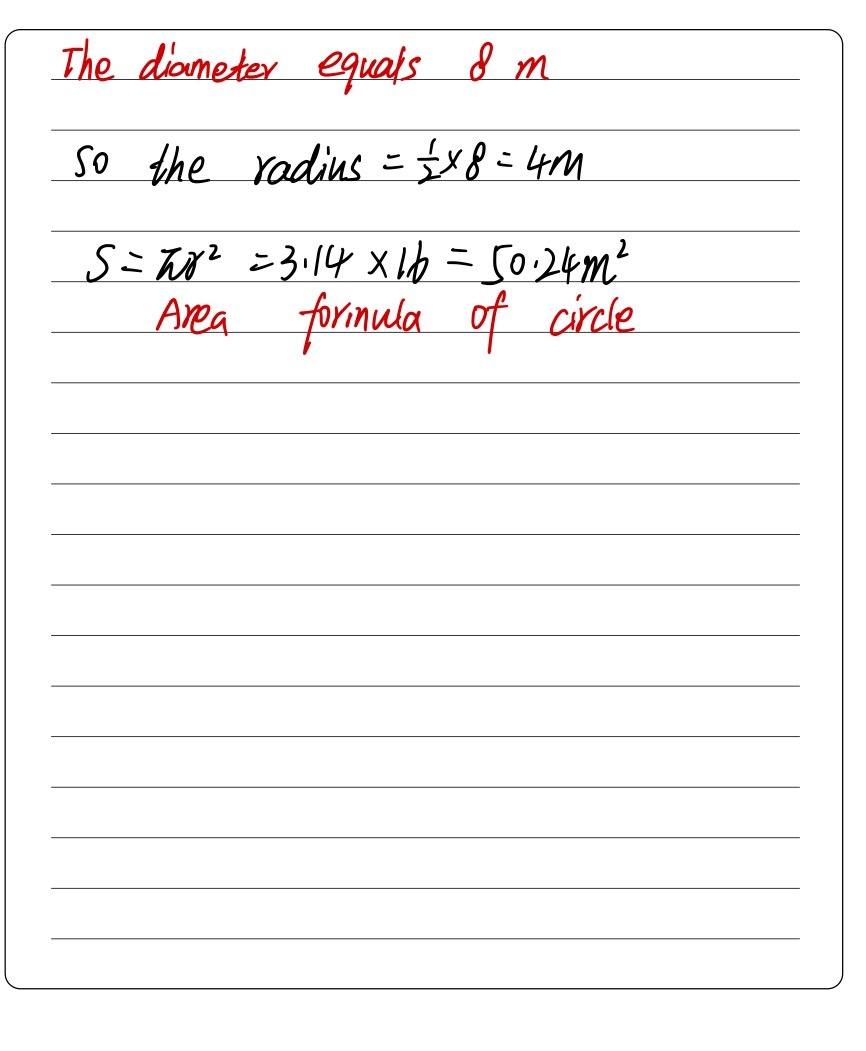 The diameter equals 8 m
so the radius = 1/2 × 8 = 4m
S = πr² = 3.14 × 16 = 50.24m²
Area formula of circle